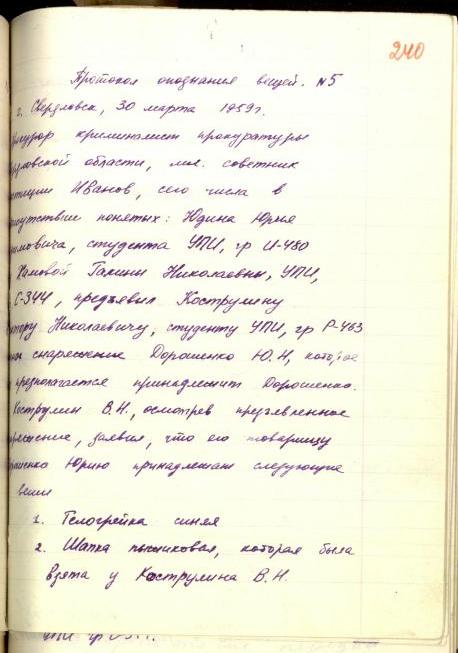 240
Протокол опознания вещей. №5
г. Свердловск, 30 марта 1959г.
рокурор криминалист прокуратуры
рдловской области, мл. советник
юстиции Иванов, сего числа в
рисутствии понятых: Юдина Юрия
имовича, студента УПИ, гр И-480
Хамовой Галины Николаевны, УПИ,
С-344, предъявил Кострулину
ктору Николаевичу, студенту УПИ, гр Р-463
снаряжение Дорошенко Ю.Н, которое
предполагается принадлежит Дорошенко.
Кострулин В.Н., осмотрев предъявленное
ряжение, заявил, что его товарищу
рошенко Юрию принадлежат следующие
вещи
1. Телогрейка синяя
2. Шапка пыжиковая, которая была
взята у Кострулина В.Н.